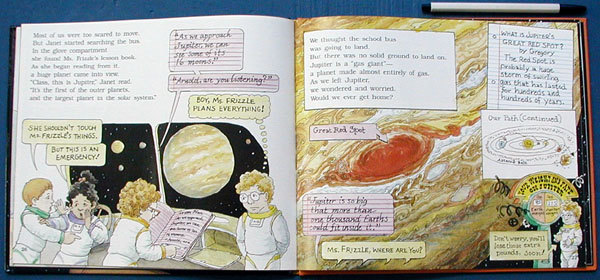 Most of us were too scared to move.
But Janet started searching the bus.
In the glove compartment
she found Ms. Frizzle's lesson book.
As she began reading from it,
a huge planet came into view.
"Class, this is Jupiter," Janet read.
"It's the first of the outer planets,
and the largest planet in the solar system."
"As we approach
Jupiter, we can
see some of its
16 moons."
"Arnold, are you listening?"
BOY, MS. FRIZZLE
PLANS EVERYTHING!
SHE SHOULDN'T TOUCH
MS. FRIZZLE'S THINGS.
BUT THIS IS AN
EMERGENCY!
We thought the school bus
was going to land.
But there was no solid ground to land on.
Jupiter is a "gas giant"—
a planet made almost entirely of gas.
As we left Jupiter,
we wondered and worried.
Would we ever get home?
Great Red Spot
"Jupiter is so big
that more than
one thousand Earths
could fit inside it."
MS. FRIZZLE, WHERE ARE YOU?
WHAT IS JUPITER'S
GREAT RED SPOT?
by Gregory
The Red Spot is
probably a huge
storm of swirling
gas that has lasted
for hundreds and
hundreds of years.
Our Path (Continued)
Asteroid Belt
YOUR WEIGHT ON
JUPITER
Don't worry, you'll
lose those extra
pounds. Soon!